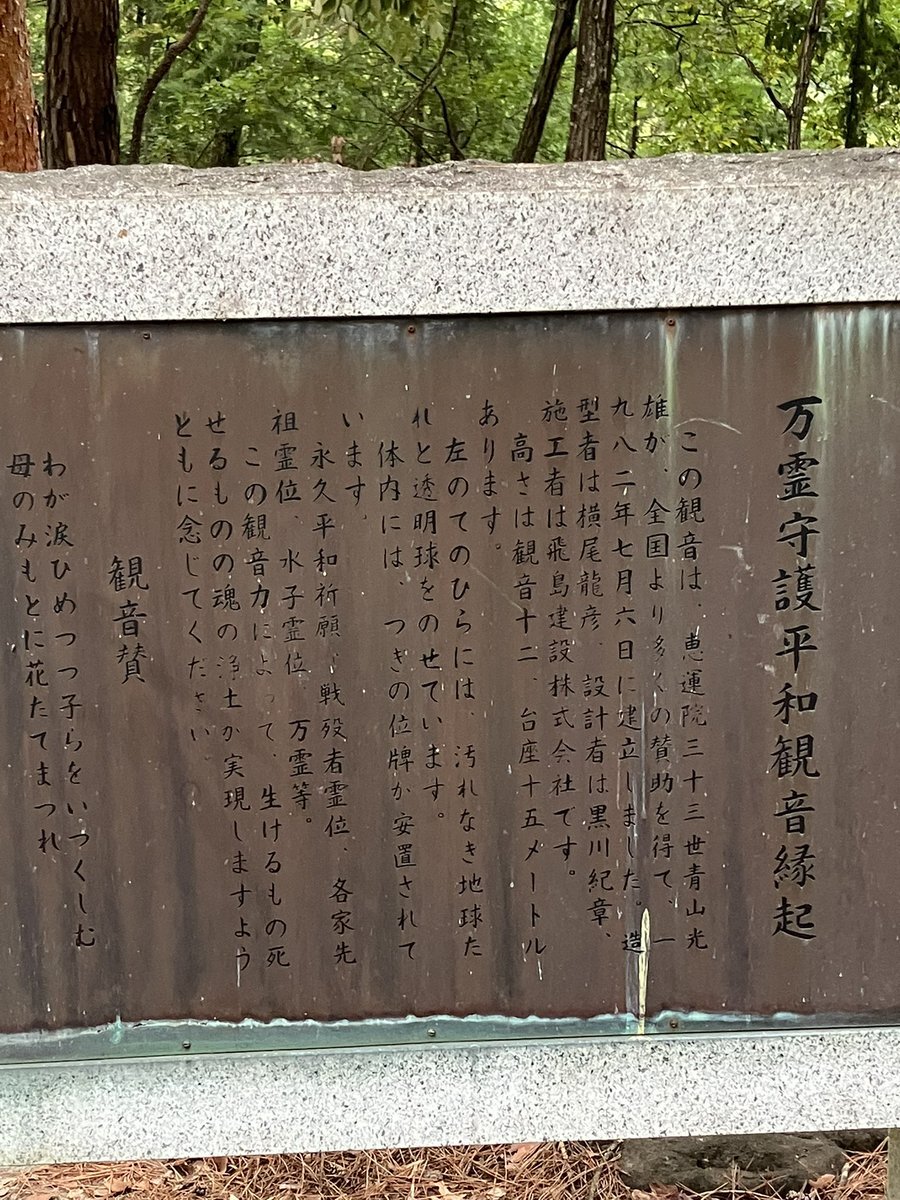 万霊守護平和観音縁起
この観音は、恵運院三十三世青山光
雄が、全国より多くの賛助を得て、一
九八二年七月六日に建立しました。造
型者は横尾龍彦、設計者は黒川紀章、
施工者は飛島建設株式会社です。
高さは観音十二、台座十五メートル
あります。
左のてのひらには、汚れなき地球た
れと透明球をのせています。
体内には、つぎの位牌が安置されて
います。
永久平和祈願、戦歿者霊位、各家先
祖霊位、水子霊位、万霊等。
この観音力によって、生けるもの死
せるものの魂の浄土が実現しますよう
ともに念じてください
観音賛
わが涙ひめつつ子らをいつくしむ
母のみもとに花たてまつれ